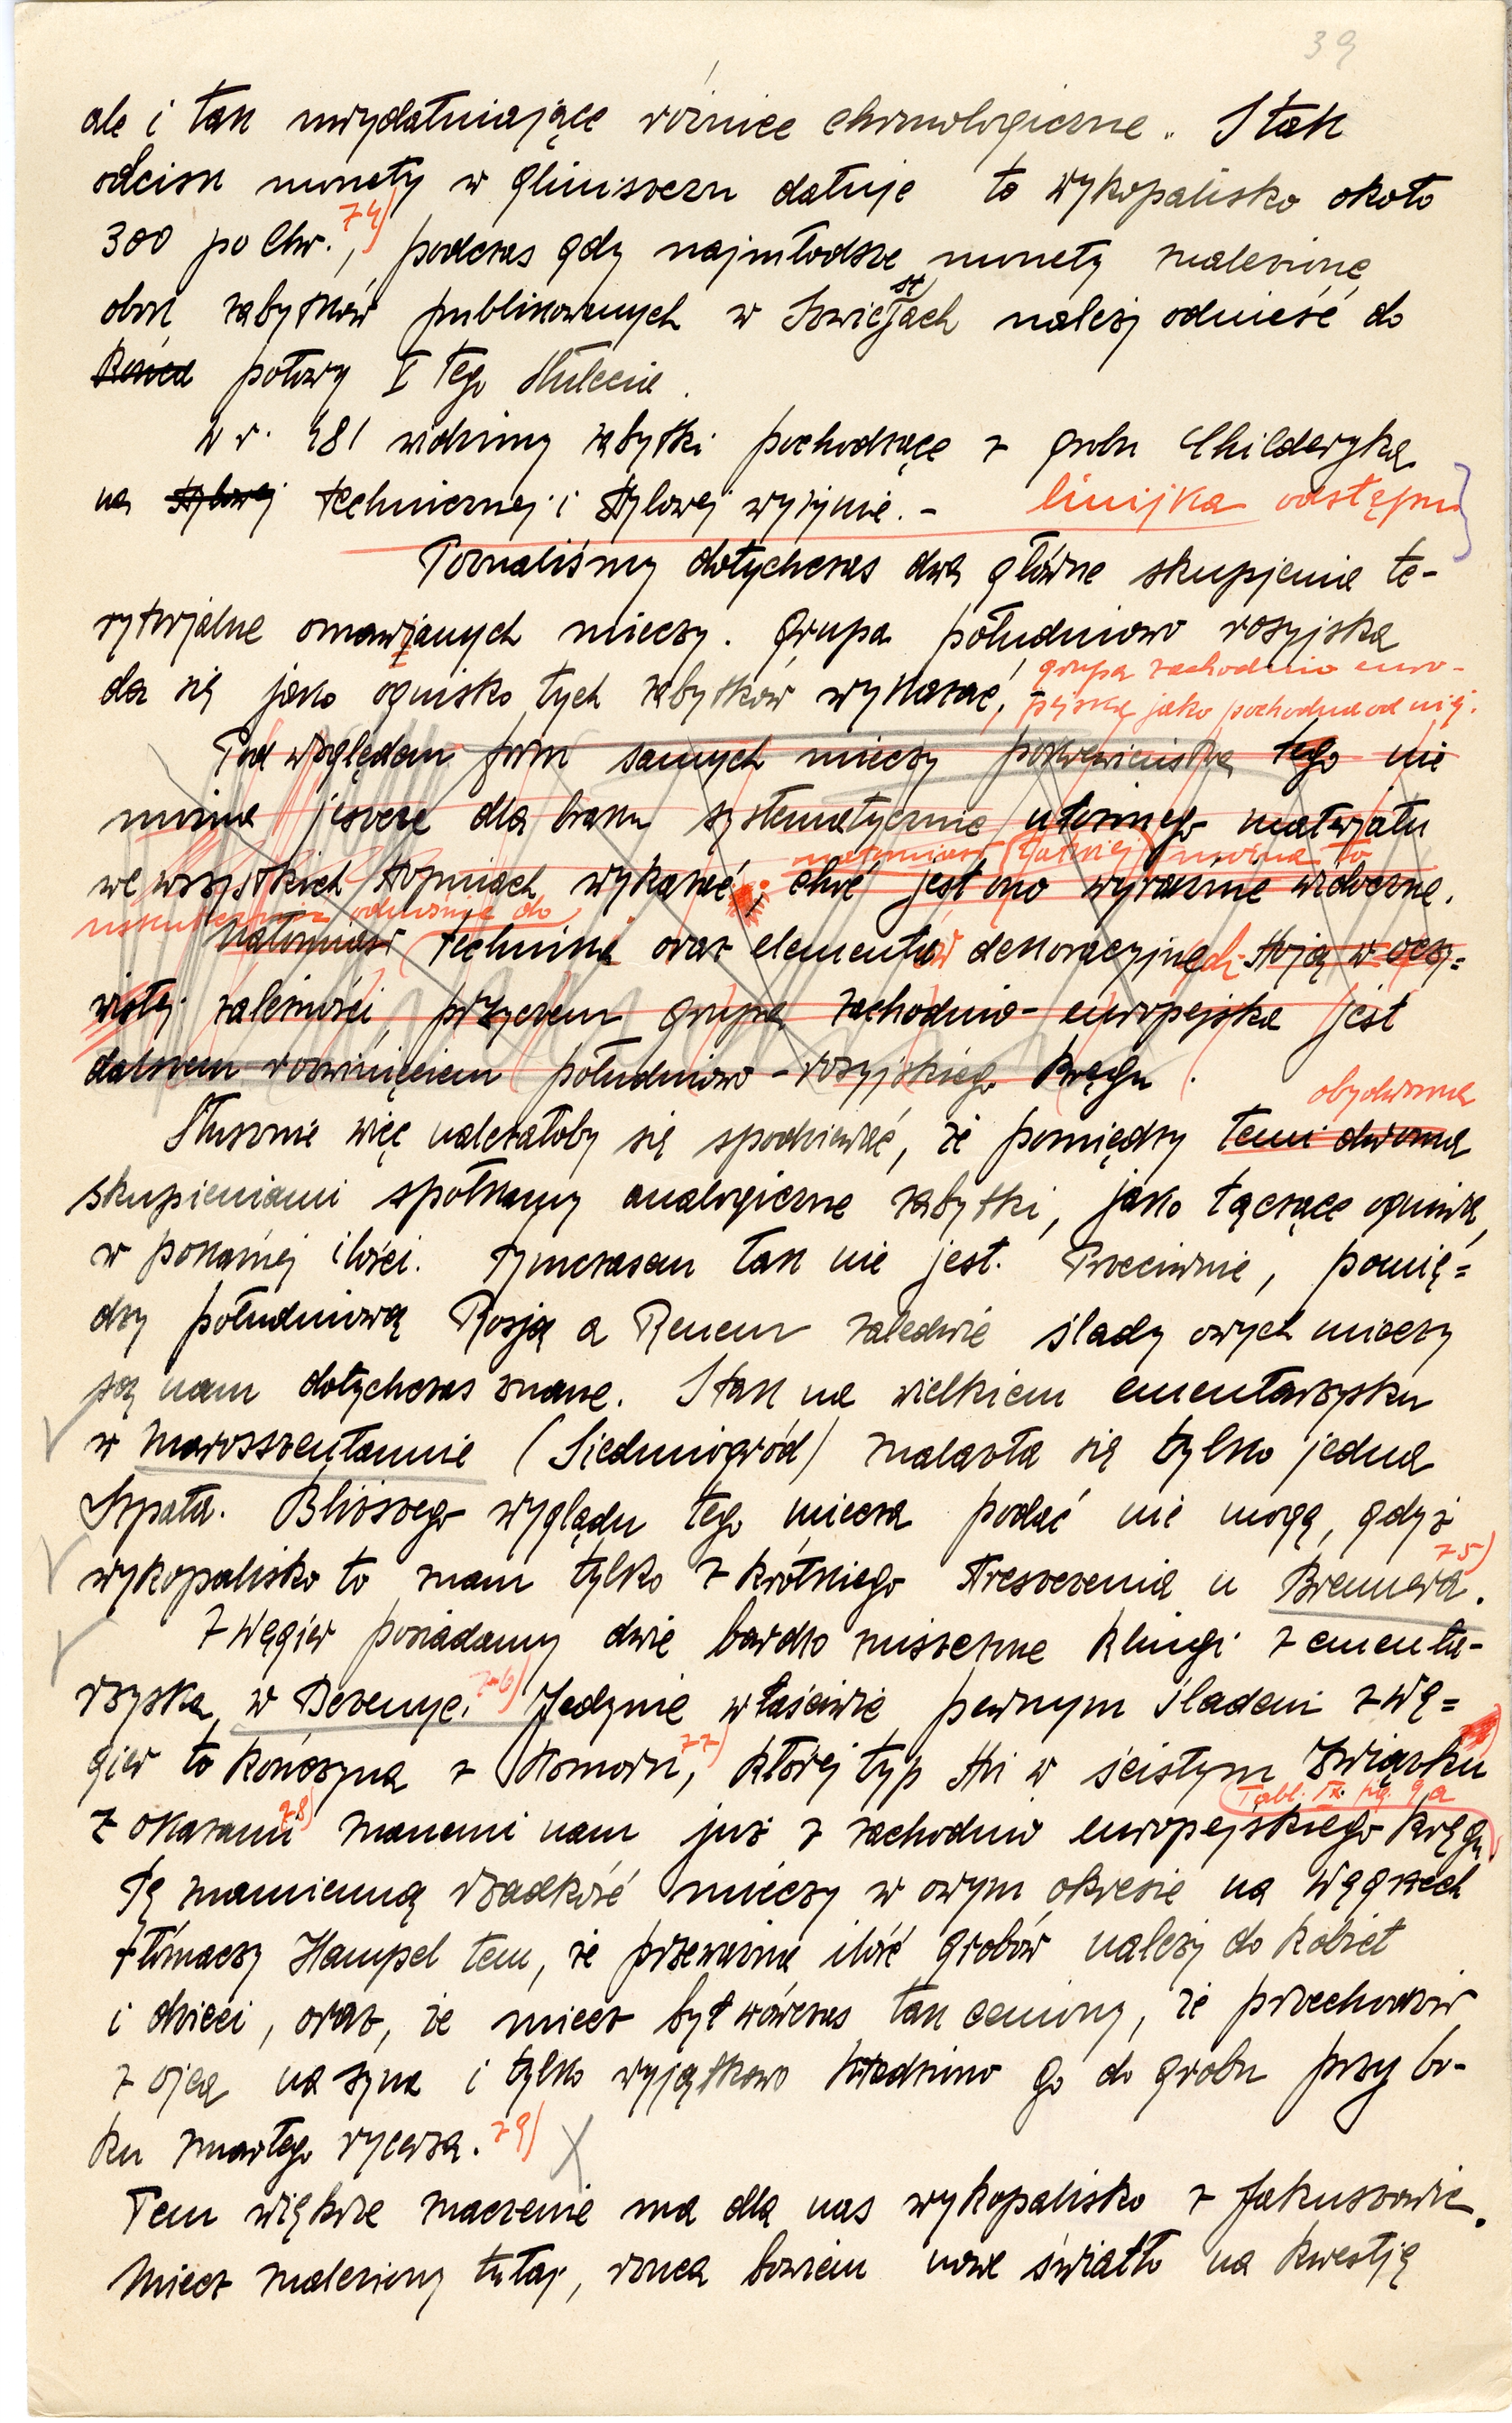 39
ale i tak uwydatniające różnice chronologiczne. I tak
odcisk monety w gliniszczu datuje to wykopalisko około
300 po Chr.,⁷⁴⁾ podczas gdy najmłodsze monety znalezione
obok zabytków publikowanych w należy odnieść do
końca połowy I tego stulecia.
W r. 481 widzimy zabytki pochodzące z grobu Childeryka
na stylowej technicznej i stylowej wyżynie. – linijka odstępu
Poznaliśmy dotychczas dwa główne skupienia te-
rytorjalne omawianych mieczy. Grupa południowo rosyjska
da się jako ognisko tych zabytków wykazać, grupa zachodnio euro-
pejska jako pochodna od niej.
Pod względem form samych mieczy pokrewieństwa tego nie
można jeszcze dla braku systematycznie ułożonego materjału
natomiast łatwiej można to
we wszystkich stopniach wykazać, choć jest ono wyraźnie widoczne.
uskutecznić odnośnie do
Natomiast technika oraz elementów dekoracyjnych stoją w oczy=
wistej zależności, przyczem grupa zachodnio-europejska jest
dalszem rozwinięciem południowo-rosyjskiego kręgu.
obydwoma
Słusznie więc należałoby się spodziewać, że pomiędzy temi dwoma
skupieniami spotkamy analogiczne zabytki, jako łączące ogniwa,
w pokaźnej ilości. Tymczasem tak nie jest. Przeciwnie, pomię=
dzy południową Rosją a Renem zaledwie ślady owych mieczy
są nam dotychczas znane. I tak na wielkiem cmentarzysku
w Marosszentannie (Siedmiogród) znalazła się tylko jedna
Szpata. Bliższego wyglądu tego miecza podać nie mogę, gdyż
wykopalisko to znam tylko z krótkiego streszczenia u Brennera.⁷⁵⁾
Z Węgier posiadamy dwie bardzo zniszczone klingi z cmenta-
rzyska w ⁷⁶⁾ Jedynie właściwie pewnym śladem z Wę=
gier to kończyna z Komorn,⁷⁷⁾ której typ stoi w ścisłym związku
Tabl. IX. fig. 9 a
z okazami⁷⁸⁾ znanemi nam już z zachodnio europejskiego kręgu
Tę znamienną rzadkość mieczy w owym okresie na Węgrzech
tłómaczy Hampel tem, że przeważna ilość grobów należy do kobiet
i dzieci, oraz, że miecz był wówczas tak ceniony, że przechodził
z ojca na syna i tylko wyjątkowo kładziono go do grobu przy bo-
ku zmarłego rycerza.⁷⁹⁾
Tem większe znaczenie ma dla nas wykopalisko z Jakuszowic.
Miecz znaleziony tutaj, rzuca bowiem nowe światło na kwestję